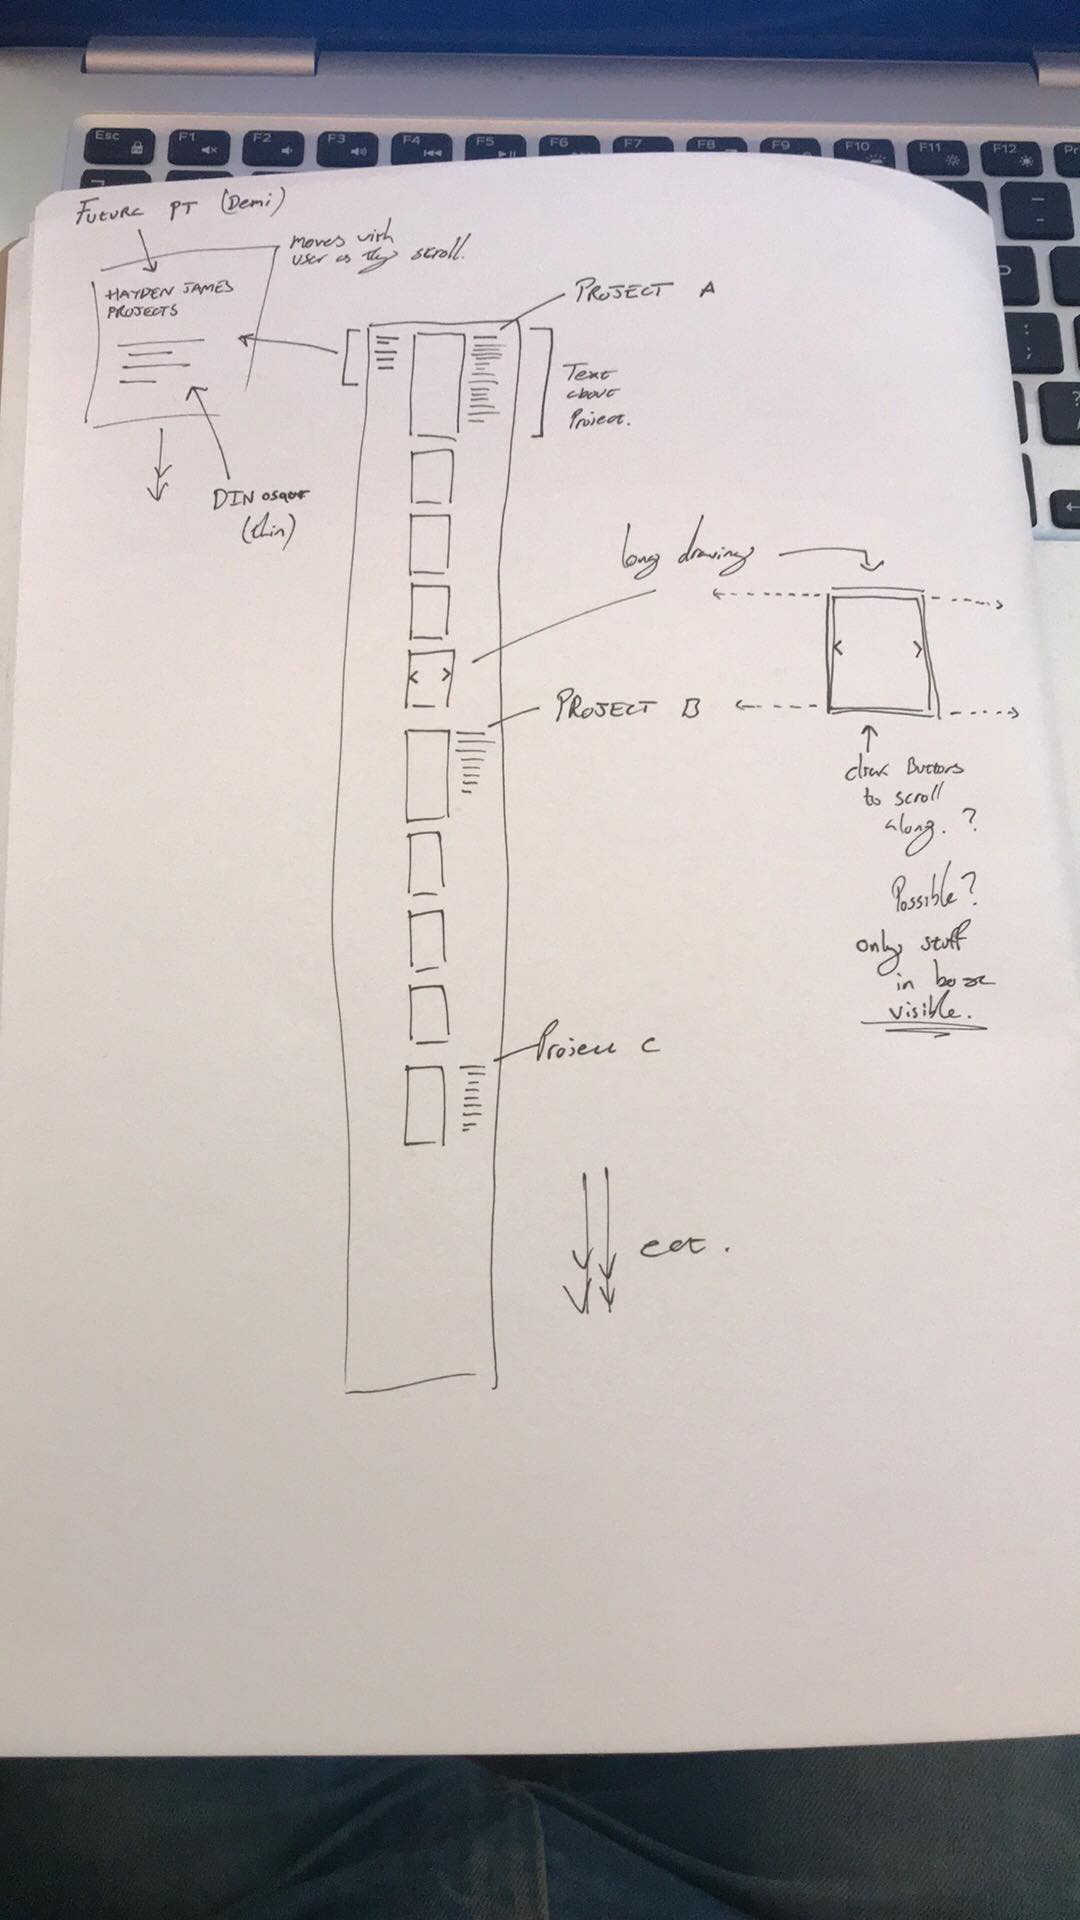 Esc
F1
F2
F3
F4
F5
F6
F7
F8
F9
F10
F11
F12
Pr
FUTURE PT (Demi)
moves with
user as they scroll.
HAYDEN JAMES
PROJECTS
PROJECT A
Text
about
Project.
DIN
(thin)
long drawings
< >
< >
PROJECT B
click Buttons
to scroll
along. ?
Possible?
only stuff
in box
visible.
Project C
ect.